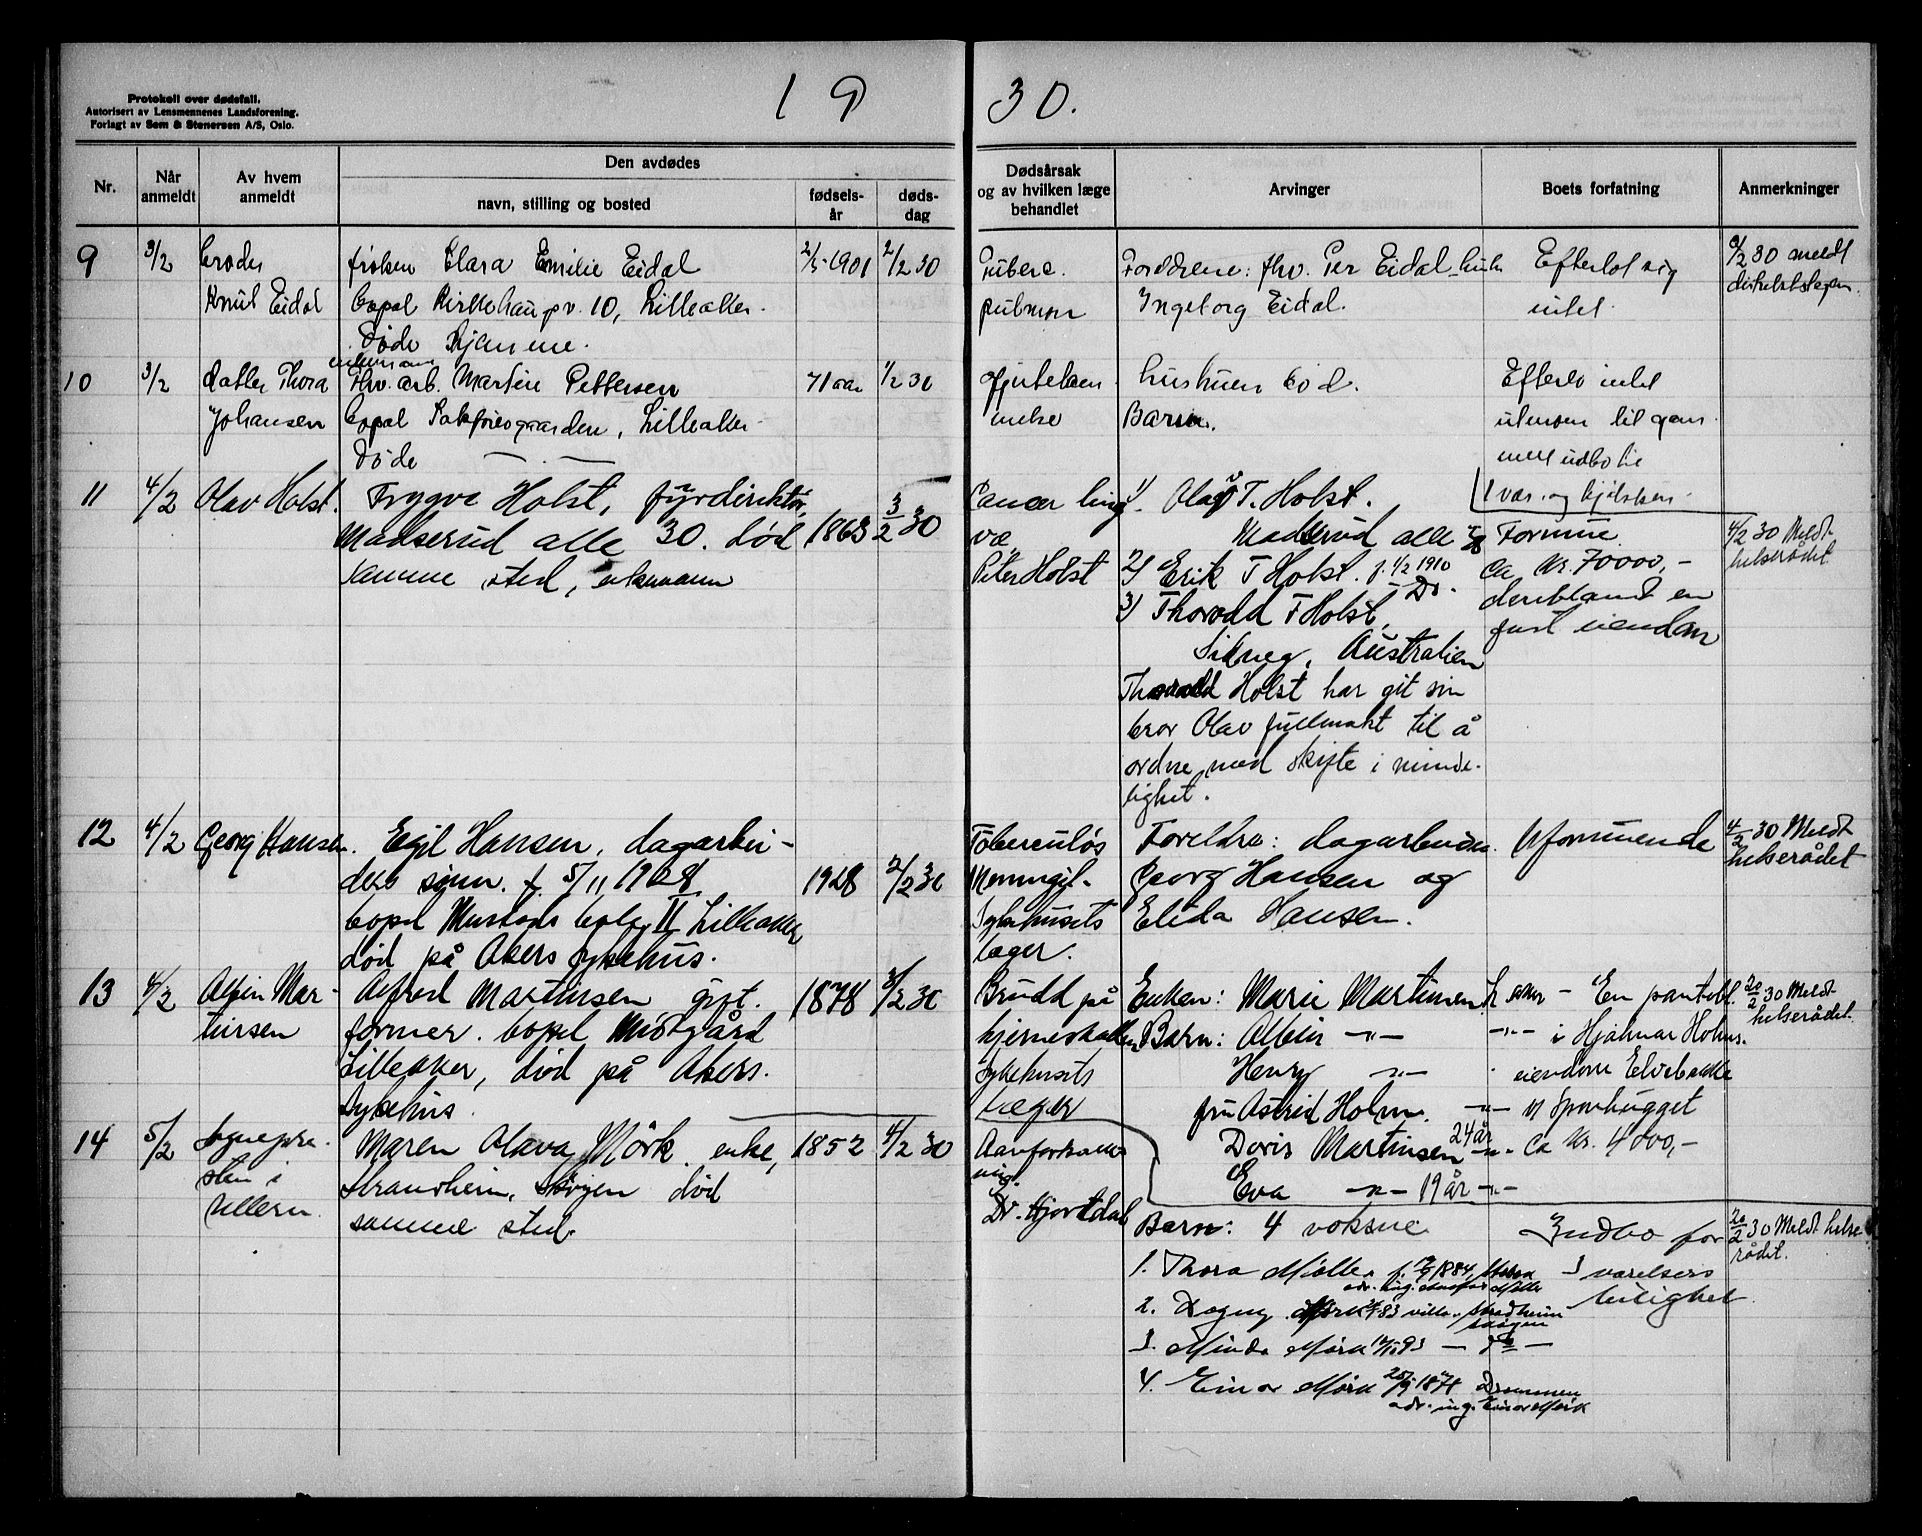 Protokoll over dødsfall.
Autorisert av Lensmennenes Landsforening.
Forlagt av Sem & Stenersen A/S, Oslo.
19 30.
Nr.
Når anmeldt
Av hvem anmeldt
Den avdødes
navn, stilling og bosted
fødsels-år
døds-dag
Dødsårsak og av hvilken læge behandlet
Arvinger
Boets forfatning
Anmerkninger
9 3/2 broder frøken Clara Emilie Eidal 2/5-1901 2/2 30
Knut Eidal bopal Kirkehaugsv. 10, Lilleaker.
Døde hjemme.
Tuberc. pulmon
Foreldrene: fhv. Per Eidal
Ingeborg Eidal.
Efterlot sig intet.
6/2 30 meldt
10 3/2 datter Thora enkemann
fhv. arb. Martin Pettersen 71 aar 1/2 30
Johansen bopal Sakførergaarden, Lilleaker
Døde
hustruen død.
Barn.
Efterlo intet
utenom litt gam
melt indbo in
1 vær. og kjøkken.
11 4/2 Olav Holst. Trygve Holst, fyrdirektør,
Madserud alle 30. død 1863 3/2 30
samme sted, enkemann
Cancer lingvæ
Peter Holst
1/ Olav T. Holst.
Madserud alle 30
2/ Erik T Holst. f. 1/2 1910
Do.
3/ Thorvald T Holst,
Sidney, Australien
Thorvald Holst har git sin
bror Olav fullmakt til å
ordne med skifte i minde-
lighet.
Formue
ca kr. 70000,-
deriblandt en
fast eiendom
4/2 30 Meldt
helserådet
12 4/2 Georg Hansen. Egil Hansen, dagarbei-
ders sønn. f. 5/11 1928 1928 2/2 30
bopel Mustads bolig II Lilleaker
død på Akers sykehus.
Tuberculøs
Meningit.
Sykehusets
læger.
Foreldre: dagarbeider
Georg Hansen og
Elida Hansen.
Uformuende
4/2 30 Meldt
helserådet
13 4/2 Albin Mar-
tinsen
Alfred Martinsen gift. 1878 3/2 30
former. bopel Midtgård
Lilleaker, død på Akers.
Sykehus.
Brudd på
hjerneskallen
Sykehusets
Læger
Enken: Marie Martinsen L. aker
Barn: Albin -"- -"-
Henry -"-
fru Astrid Holm. -"-
Doris Martinsen 24 år -"-
Eva -"- 19 år -"-
En panteobl.
i Hjalmar Holms.
eiendom Elvebakke
ca kr. 4000,-
20/2 30 Meldt
helserådet.
14 5/2 Sognepre-
sten i
Ullern.
Maren Olava Mörk. enke, 1852 4/2 30
Strandheim, Skøyen død
samme sted.
Aareforkalk-
ning.
Dr. Hjortdal
Barn: 4 voksne
1. Thora Møller
2. Dagny Mørk
villa Strandheim
Skøien
3. Minda Mørk
4. Einar Mørk Drammen
adr. ing. Einar Mørk
Indbo for
3 værelsers
leilighet
20/2 30 Meldt helse-
rådet.